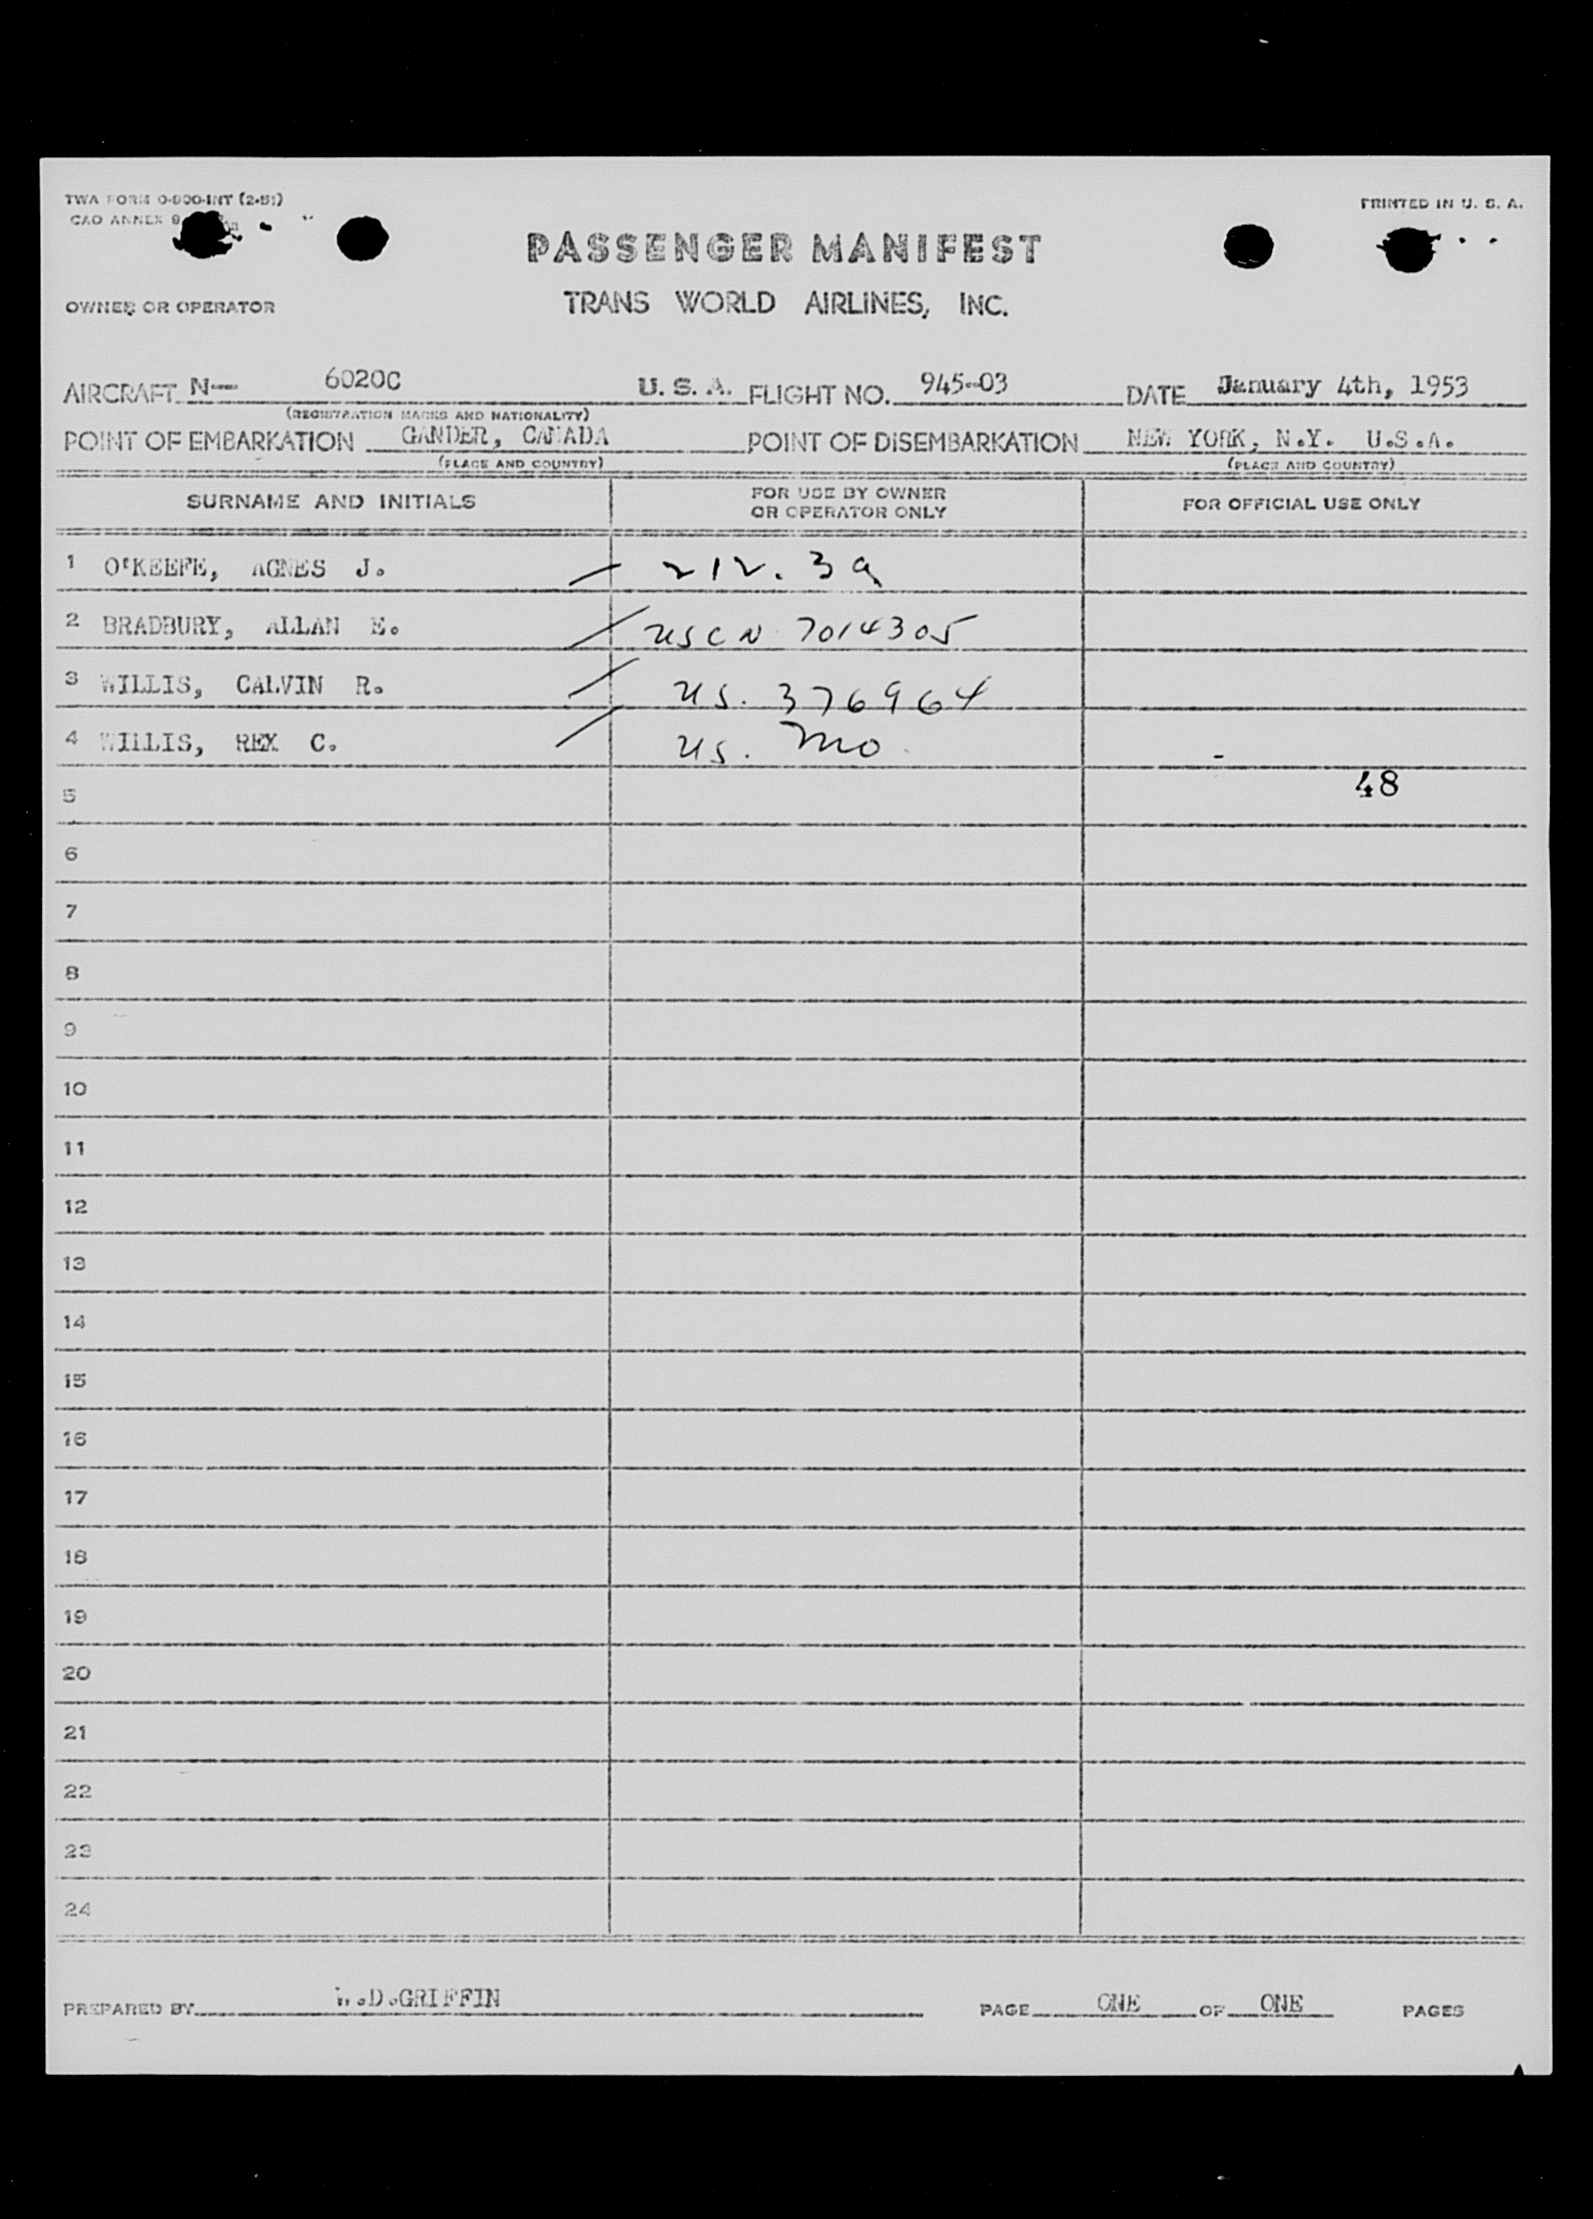 TWA FORM O-800-INT (2-51)
CAO ANNEX 9
PRINTED IN U. S. A.
PASSENGER MANIFEST
OWNER OR OPERATOR
TRANS WORLD AIRLINES, INC.
AIRCRAFT N— 6020C U. S. A. FLIGHT NO. 945-03 DATE January 4th, 1953
(REGISTRATION MARKS AND NATIONALITY)
POINT OF EMBARKATION GANDER, CANADA POINT OF DISEMBARKATION NEW YORK, N.Y. U.S.A.
(PLACE AND COUNTRY) (PLACE AND COUNTRY)
SURNAME AND INITIALS FOR USE BY OWNER OR OPERATOR ONLY FOR OFFICIAL USE ONLY
1 O'KEEFE, AGNES J. 212.3a
2 BRADBURY, ALLAN E. USCN 7014305
3 WILLIS, CALVIN R. US. 376964
4 WILLIS, REX C. US. Mo
5 48
6
7
8
9
10
11
12
13
14
15
16
17
18
19
20
21
22
23
24
PREPARED BY W.D.GRIFFIN PAGE ONE OF ONE PAGES